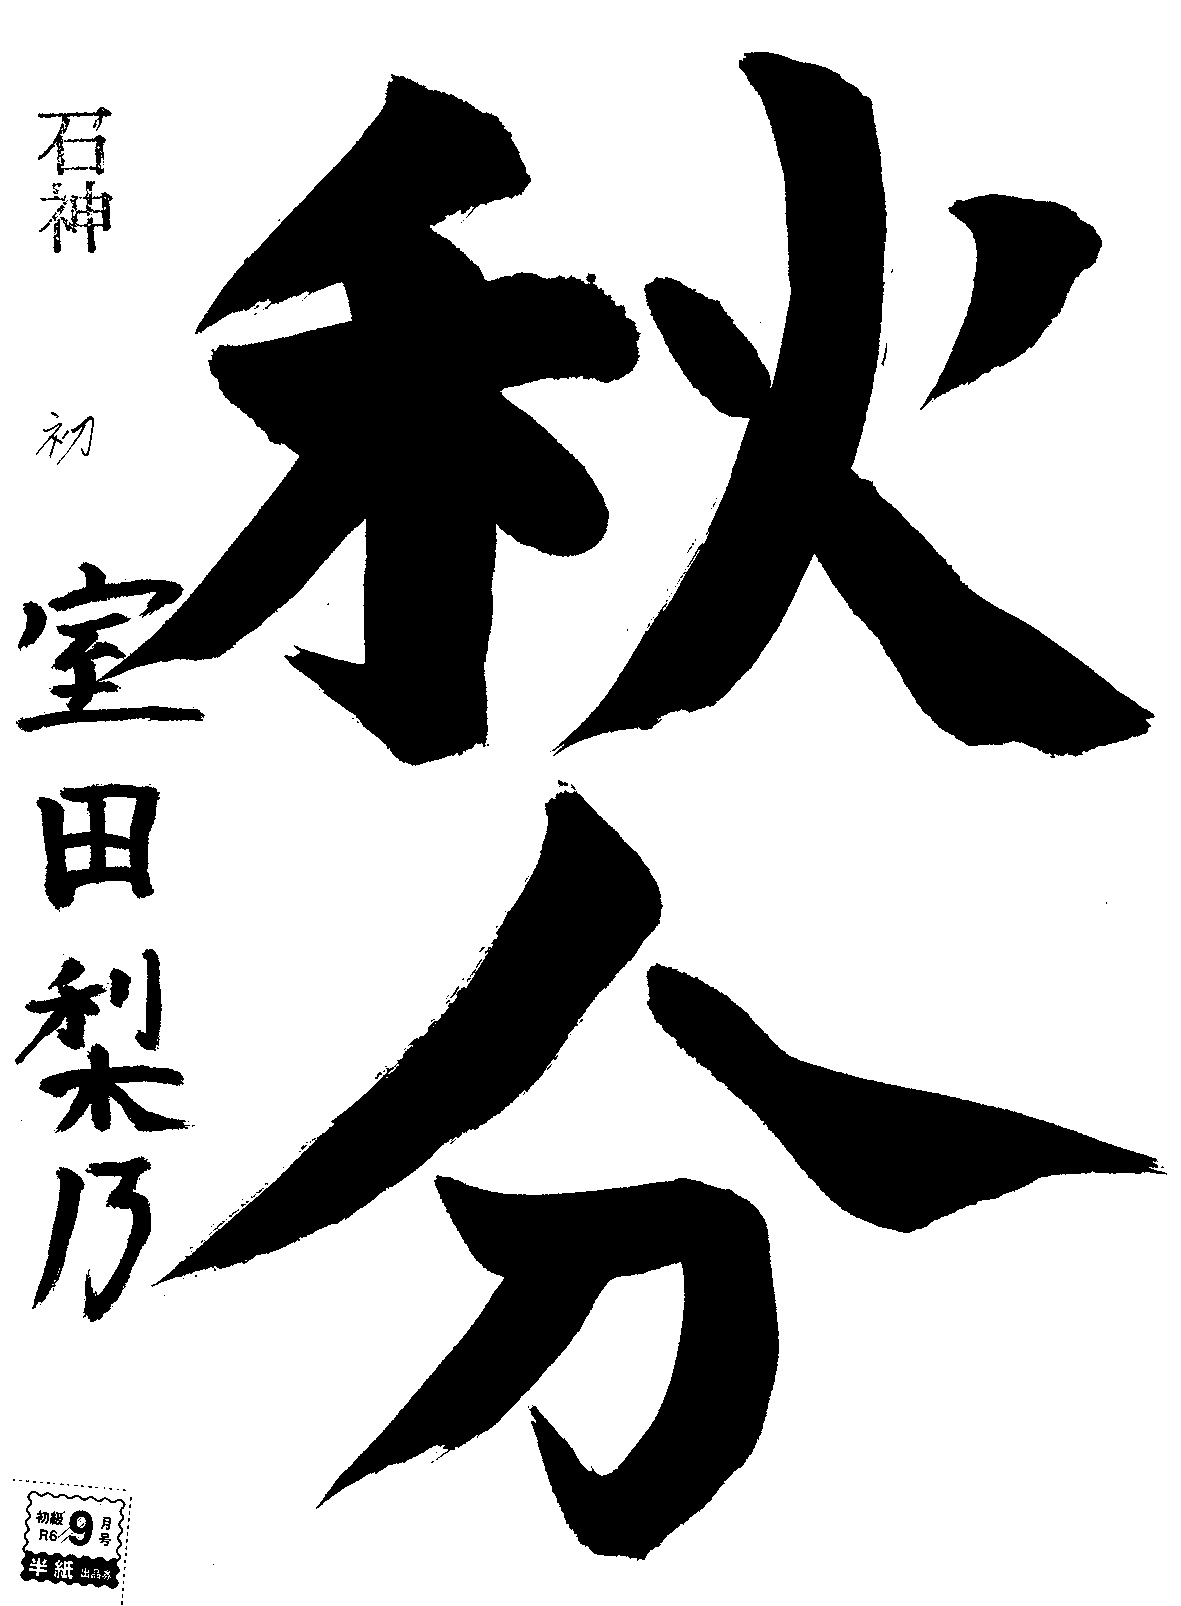 秋分
石神 初 室田梨乃
初級 R6/9月号
半紙 出品券